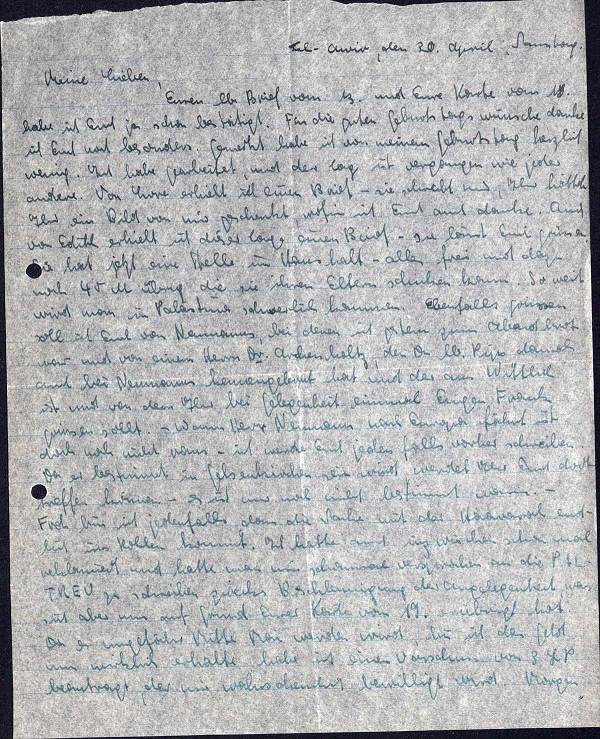 Tel-Aviv, den 20. April, Samstag.
Meine Lieben,
Euren lb. Brief vom 13. und Eure Karte vom 18.
habe ich Euch ja schon bestätigt. Für die guten Geburtstagswünsche danke
ich Euch noch besonders. Gemerkt habe ich von meinem Geburtstag herzlich
wenig. Ich habe gearbeitet, und der Tag ist vergangen wie jeder
andere. Von erhielt ich einen Brief - sie schreibt mir, Ihr hättet
Ihr ein Bild von mir geschenkt wofür ich Euch auch danke. Auch
von Edith erhielt ich dieser Tage einen Brief - sie lässt Euch grüssen.
Sie hat jetzt eine Stelle im Haushalt - alles frei und dazu
noch 45 M die sie ihren Eltern schicken kann. So weit
wird man in Palästina schwerlich kommen. Ebenfalls grüssen
soll ich Euch von Neumanns, bei denen ich gestern zum Abendbrot
war und von einem Herrn Dr. der lb. damals
auch bei Neumanns kennengelernt hat und der aus Wittlich
ist und von dem Ihr bei Gelegenheit einmal Eugen Frank
grüssen sollt. - Wann Herr Neumann nach Europa fährt ist
doch noch nicht - ich werde Euch jedenfalls vorher schreiben.
Da er bestimmt in Gelsenkirchen sein wird werdet Ihr Euch dort
treffen können - es ist nur noch nicht bestimmt wann. -
Froh bin ich jedenfalls dass die Sache mit der
ins Rollen kommt. Ich hatte auch inzwischen schon mal
reklamiert und hatte man mir versprochen an die PAL-
TREU zu schreiben zwecks Beschleunigung der Angelegenheit, was
sich aber nun auf Grund Eurer Karte vom 19. erübrigt hat.
Da es ungefähr Mitte Mai werden wird, bis ich das Geld
nun wirklich erhalte habe ich einen Vorschuss von 3 £P
beantragt, der mir wahrscheinlich bewilligt wird. Morgen